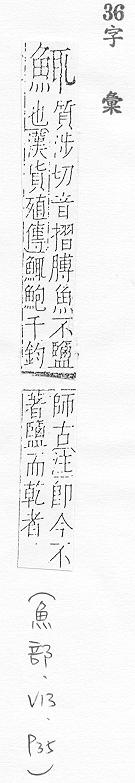 36
字彙
鮿
質涉切音摺膊魚不鹽
也漢貨殖傳鮿鮑千鈞
師古注即今不
著鹽而乾者
（魚部、V13、P35）